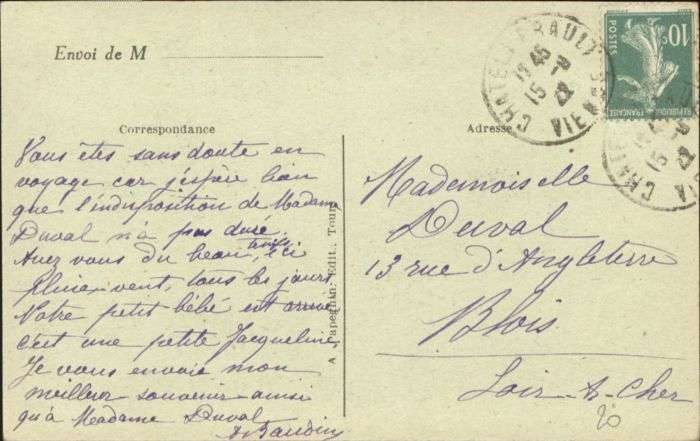 Envoi de M
Correspondance
Vous êtes sans doute en
voyage car j'espère bien
que l'indisposition de Madame
Duval n'a pas duré.
Avez vous du beau temps, ici
pluie, vent, tous les jours
Notre petit bébé est arrivé
c'est une petite Jacqueline
Je vous envoie mon
meilleur souvenir ainsi
qu'à Madame Duval
A. Papeghin. Edit. Tours
Adresse
Mademoiselle
Duval
13 rue d'Angleterre
Blois
Loir-&-Cher
20
CHATELLERAULT
11 45
15
22
VIENNE
10c
POSTES
REPUBLIQUE